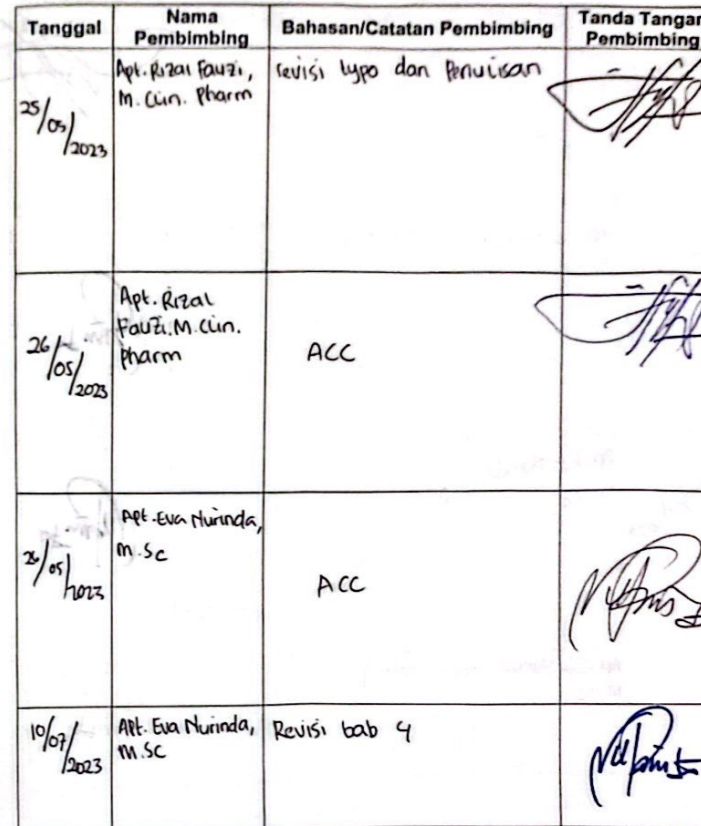 Tanggal
Nama Pembimbing
Bahasan/Catatan Pembimbing
Tanda Tangan Pembimbing
25/05/2023
Apt. Rizal Fauzi,
M. Clin. Pharm
revisi typo dan Penulisan
26/05/2023
Apt. Rizal
Fauzi. M. Clin.
Pharm
ACC
26/05/2023
Apt. Eva Nurinda,
M.Sc
ACC
10/07/2023
Apt. Eva Nurinda,
M.Sc
Revisi bab 4